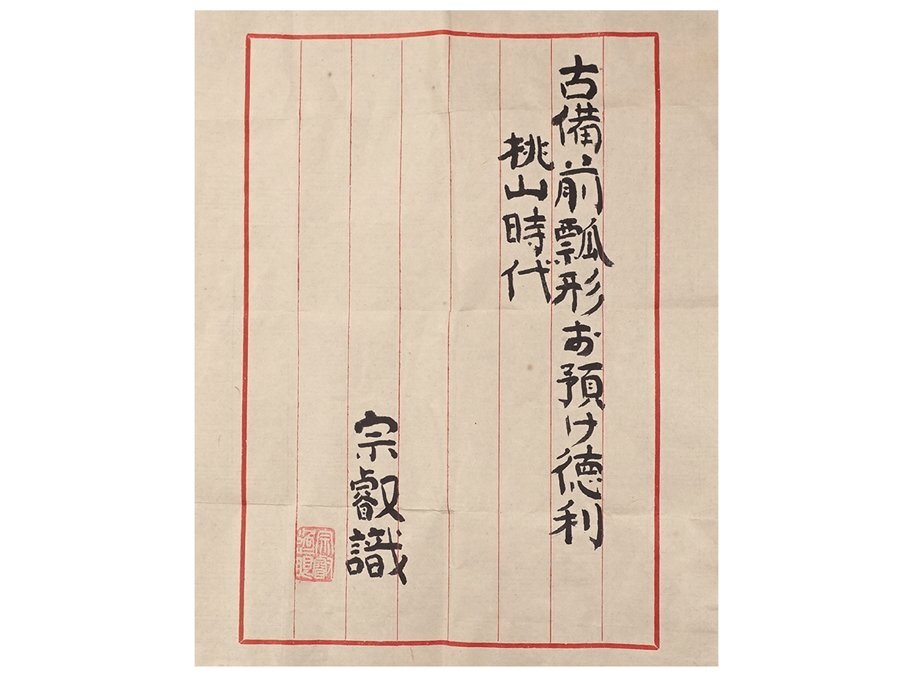 古備前瓢形お預け徳利
桃山時代
宗叡識